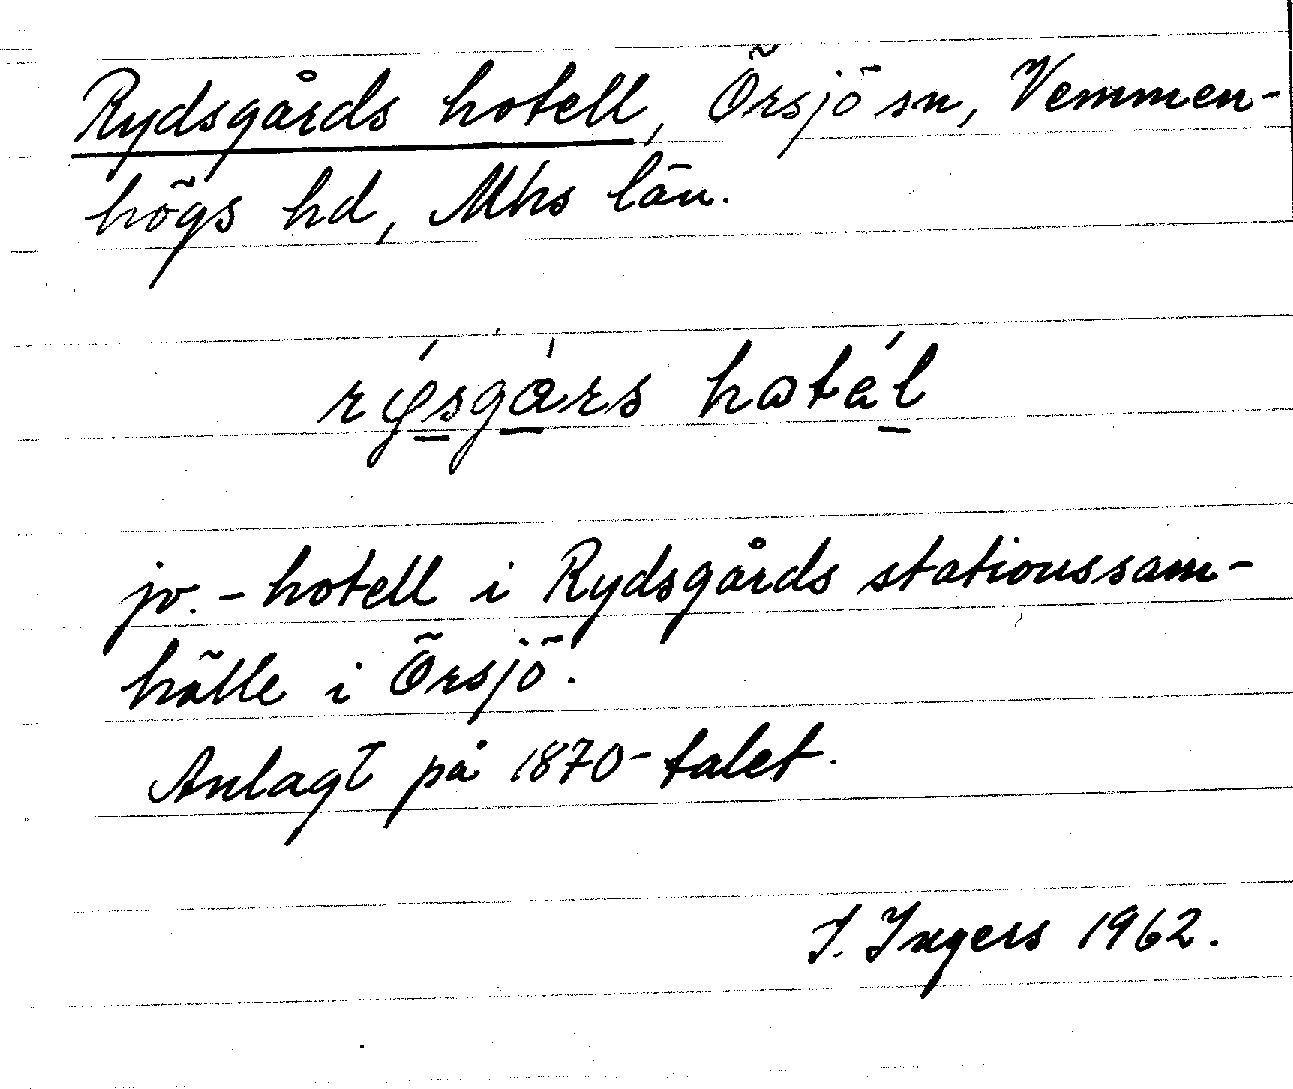 Rydsgårds hotell, Örsjö sn, Vemmen-
högs hd, Mhs län.
rýsgàrs hotál
jv.-hotell i Rydsgårds stationssam-
hälle i Örsjö.
Anlagt på 1870-talet.
I. Ingers 1962.